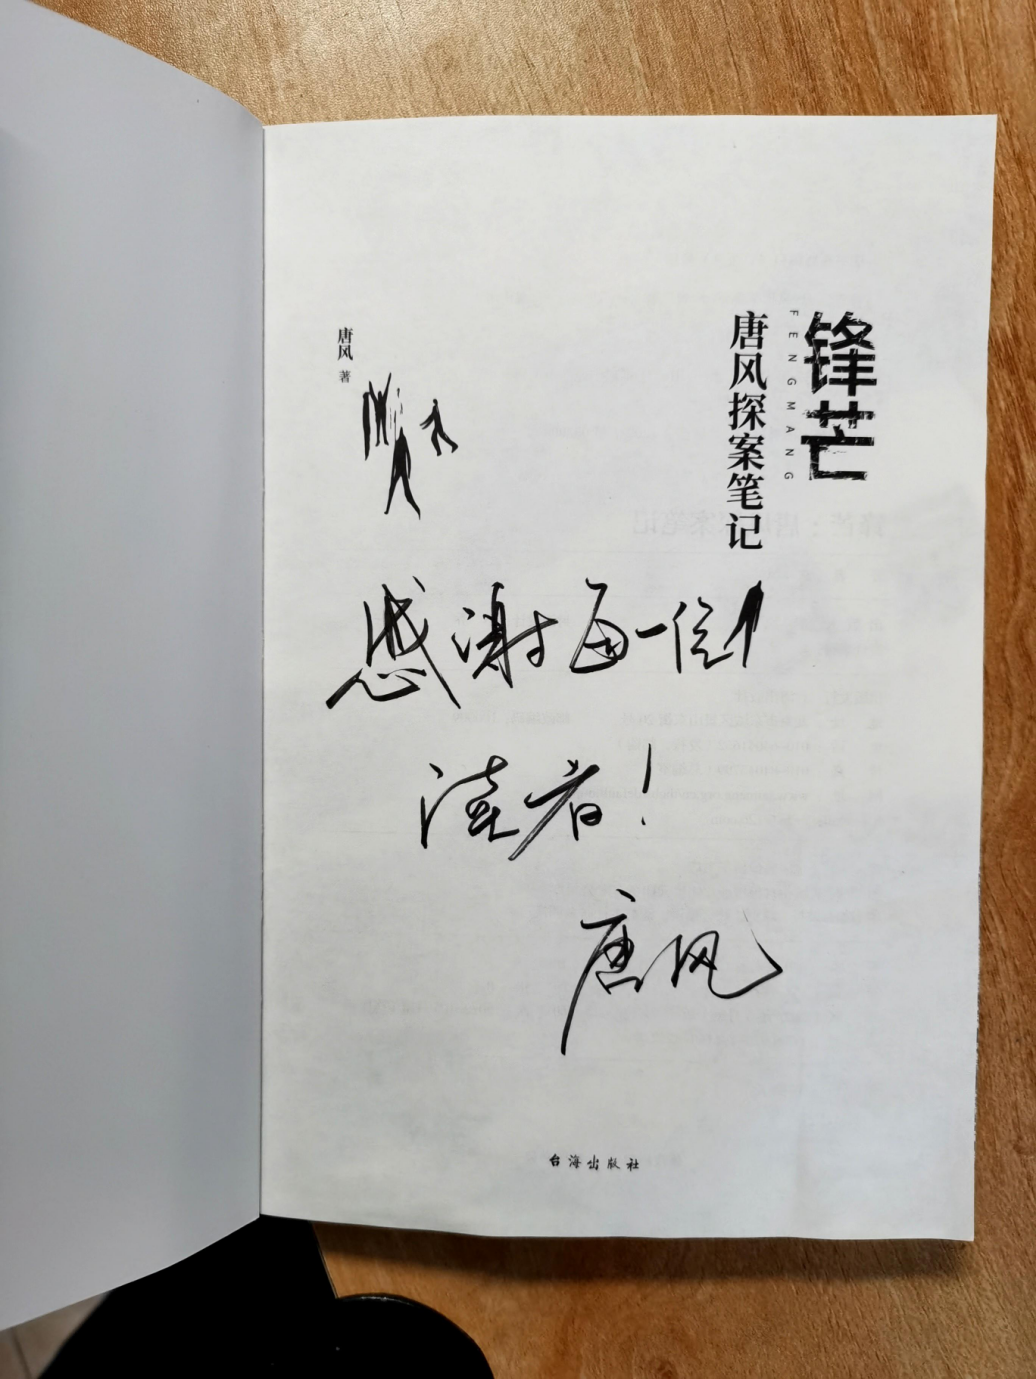 锋芒
FENGMANG
唐风探案笔记
唐风 著
感谢每一位
读者!
唐风
台海出版社